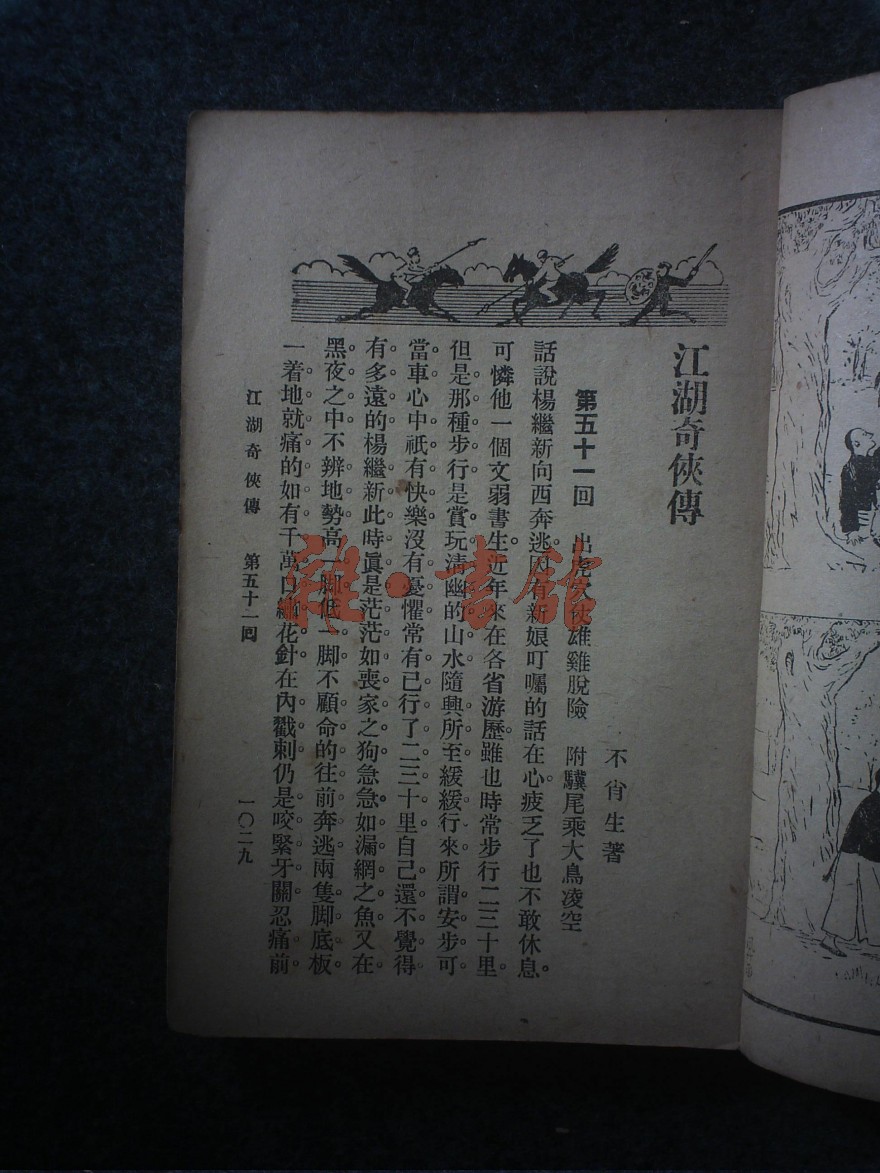 江湖奇俠傳
不肖生著
第五十一回 出虎穴仗雄雞脫險 附驥尾乘大鳥凌空
話說楊繼新向西奔逃因有新娘叮囑的話在心疲乏了也不敢休息。
可憐他一個文弱書生。近年來在各省游歷。雖也時常步行二三十里
但是那種步行是賞玩淸幽的山水隨興所至緩緩行來所謂安步可
當車心中祇有快樂沒有憂懼常有已行了二三十里自己還不覺得
有多遠的楊繼新此時眞是茫茫如喪家之狗急急如漏網之魚又在
黑夜之中不辨地勢高一脚低一脚不顧命的往前奔逃兩隻脚底板
一着地就痛的如有千萬口繡花針在內戳刺仍是咬緊牙關忍痛前
江湖奇俠傳 第五十一回 一〇二九
雜·書館